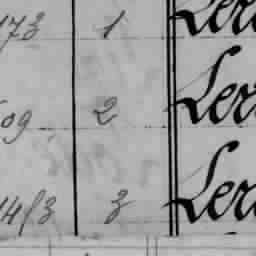 173 1 Ler
09 2 Ler
14/3 3 Ler